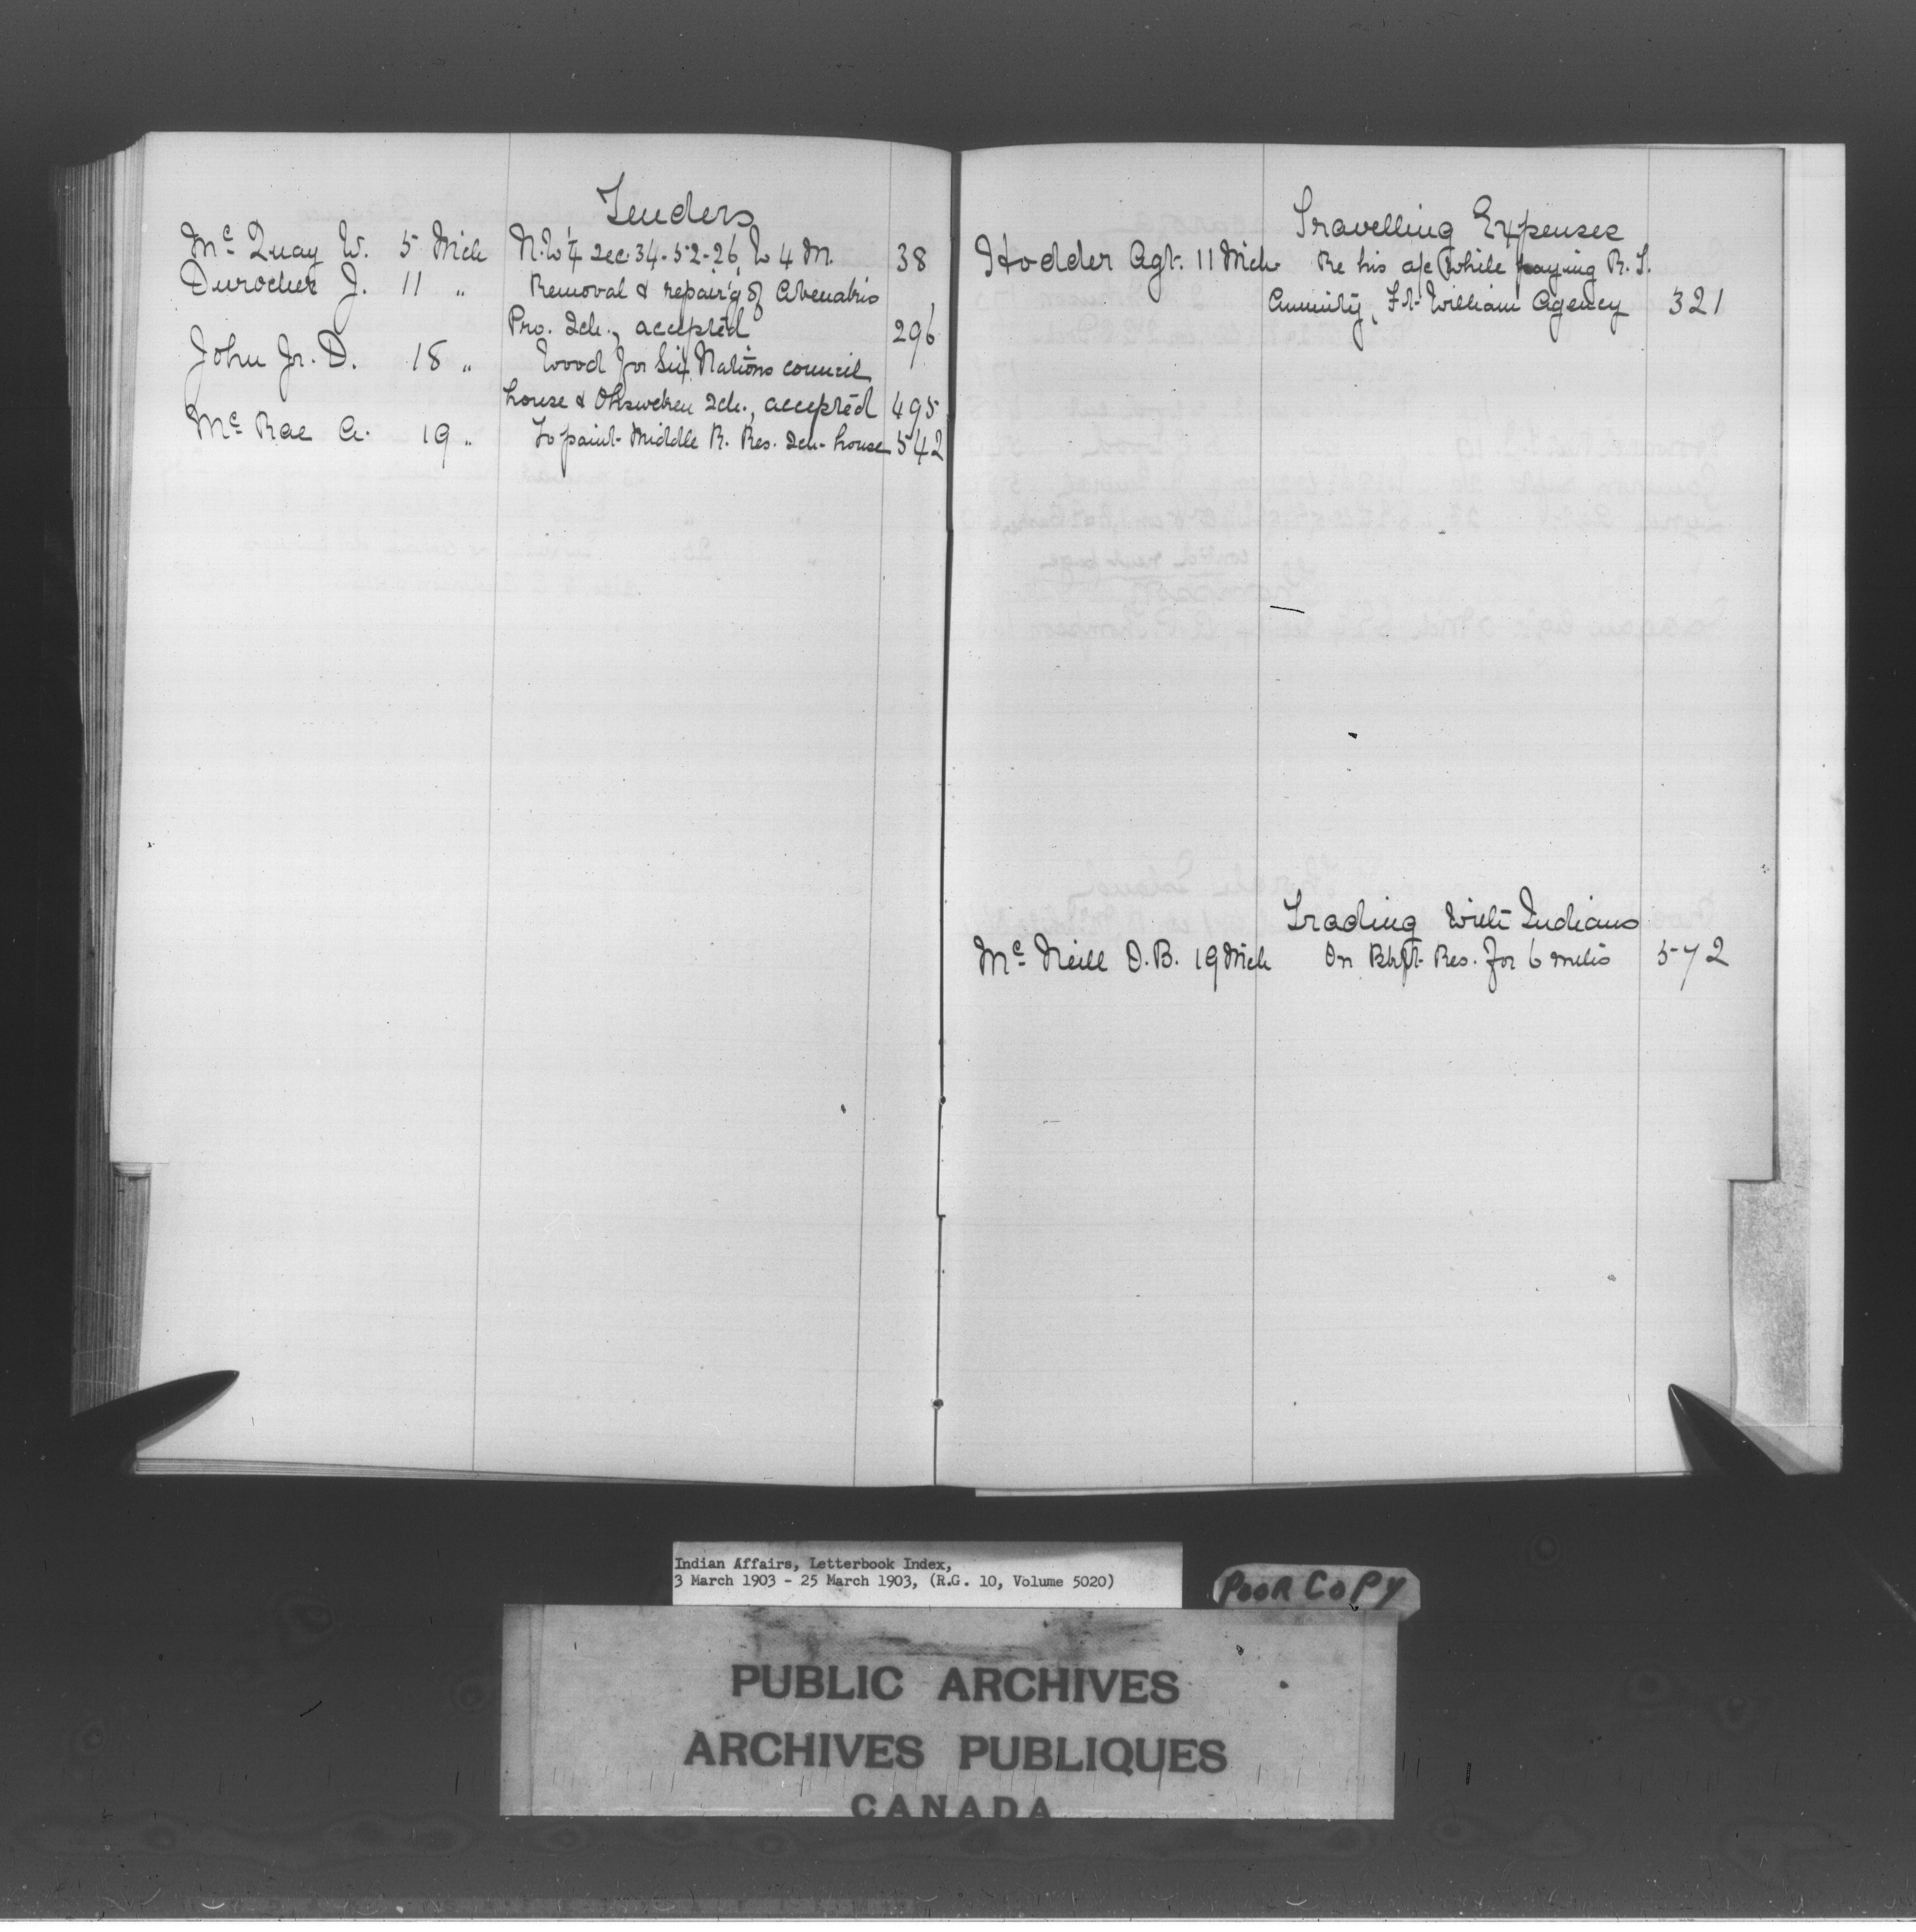 Tenders
Mc Quay W. 5 Mch N.W 1/4 Sec. 34-52-26, W 4 M. 38
Durocher J. 11 " Removal & repair'g of Abenakis
Pro. Sch., accepted 296
John Jr. D. 18 " Wood for Six Nations council
house & Ohsweken Sch., accepted 495
Mc Rae A. 19 " To paint Middle R. Res. Sch-house 542
Travelling Expenses
Hodder Agt. 11 Mch Re his a/c while paying R. T.
Annuity, Ft. William Agency 321
Trading with Indians
Mc Neill D. B. 19 Mch On Res. for 6 mths 572
Indian Affairs, Letterbook Index,
3 March 1903 - 25 March 1903, (R.G. 10, Volume 5020)
POOR COPY
PUBLIC ARCHIVES
ARCHIVES PUBLIQUES
CANADA